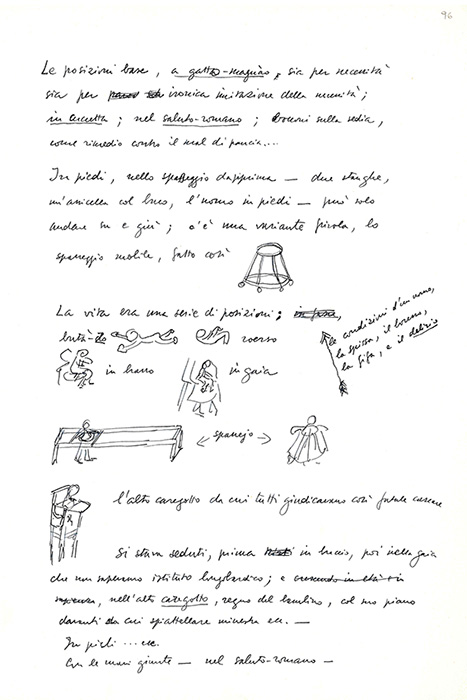 96
Le posizioni base, a gatto-magnào, sia per necessità
sia per ironica imitazione della necessità;
in cucetta; nel saluto-romano; bocconi sulla sedia,
come rimedio contro il mal di pancia...
In piedi, nello spaseggio dapprima — due stanghe,
un'assicella col buco, l'uomo in piedi — può solo
andare su e giù; c'è una variante, lo
spaseggio mobile, fatto così
La vita era una serie di posizioni;
le condizioni d'un uomo,
la spissa, il
la fifa, e il delirio
butà- roerso
in brasso in gaia
← spasejo →
l'alto caregotto da cui tutti giudicavano così
Si stava seduti, prima in braccio, poi nella gaia
che non sapevamo istituto longobardico; e
nell'alto caregotto, regno del bambino, col suo piano
davanti da cui spiattellare minestra ecc. —
In piedi ... ecc.
Con le mani giunte — nel saluto-romano —